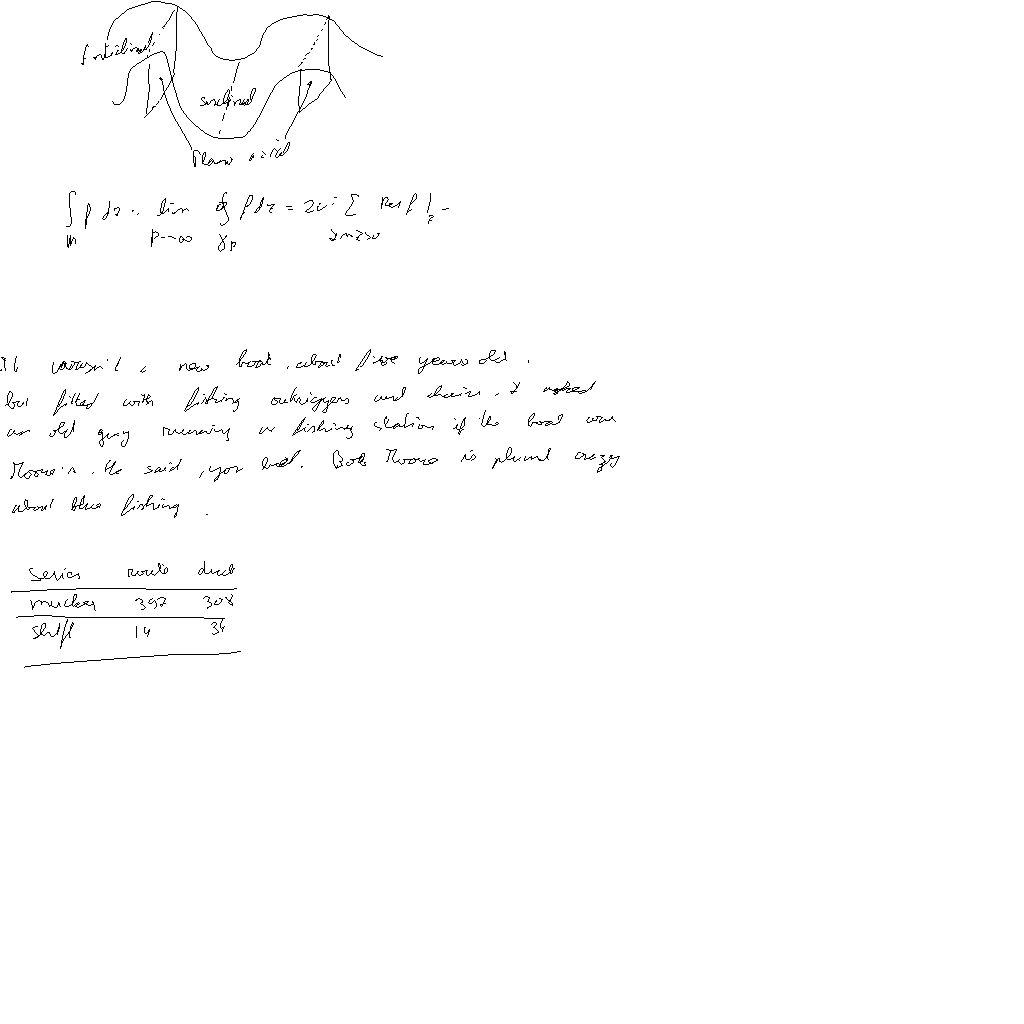 anticlinal
synclinal
Plano axial
∫ f dz = lim ∮ f dz = 2πi ∑ Res f |z
ℝ ρ→∞ γρ Im z>0
It wasn't a new boat, about five years old,
but fitted with fishing outriggers and chairs. I asked
an old guy running a fishing station if the boat was
Moore's. He said, you bet. Bob Moore is plumb crazy
about blue fishing.
series route duct
nucleus 392 308
shift 14 34